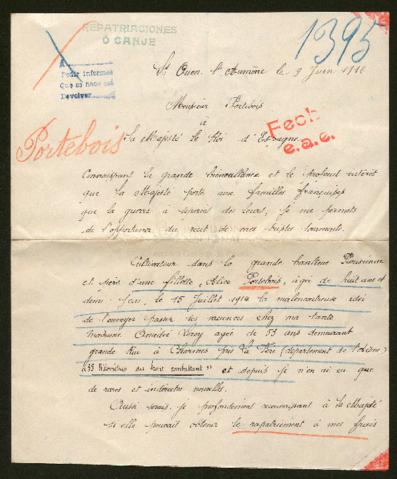 REPATRIACIONES
Ó CANJE
1395
A
Pedir informes
Que se haga
Devolver
St Ouen l'Aumône le 9 Juin 1916
Monsieur Portebois
à
Sa Majesté le Roi d'Espagne
Fech
e.a.e.
Portebois
Connaissant la grande bienveillance et le profond intérêt
que Sa Majesté porte aux familles françaises
que la guerre a séparé des leurs, je me permets
de l'opportuner du récit de mes tourments.
Cultivateur dans la grande banlieue Parisienne
et père d'une fillette, Alice Portebois, âgée de huit ans et
demi. J'eus, le 15 Juillet 1914 la malencontreuse idée
de l'envoyer passer les vacances chez ma tante
Madame agée de 53 ans demeurant
grande Rue à Charmes près La Fère (département de l'Aisne)
et depuis je n'en ai eu que
de rares et indirectes nouvelles.
Aussi serais-je profondément reconnaissant à Sa Majesté
si elle pouvait obtenir le rapatriement à mes frais